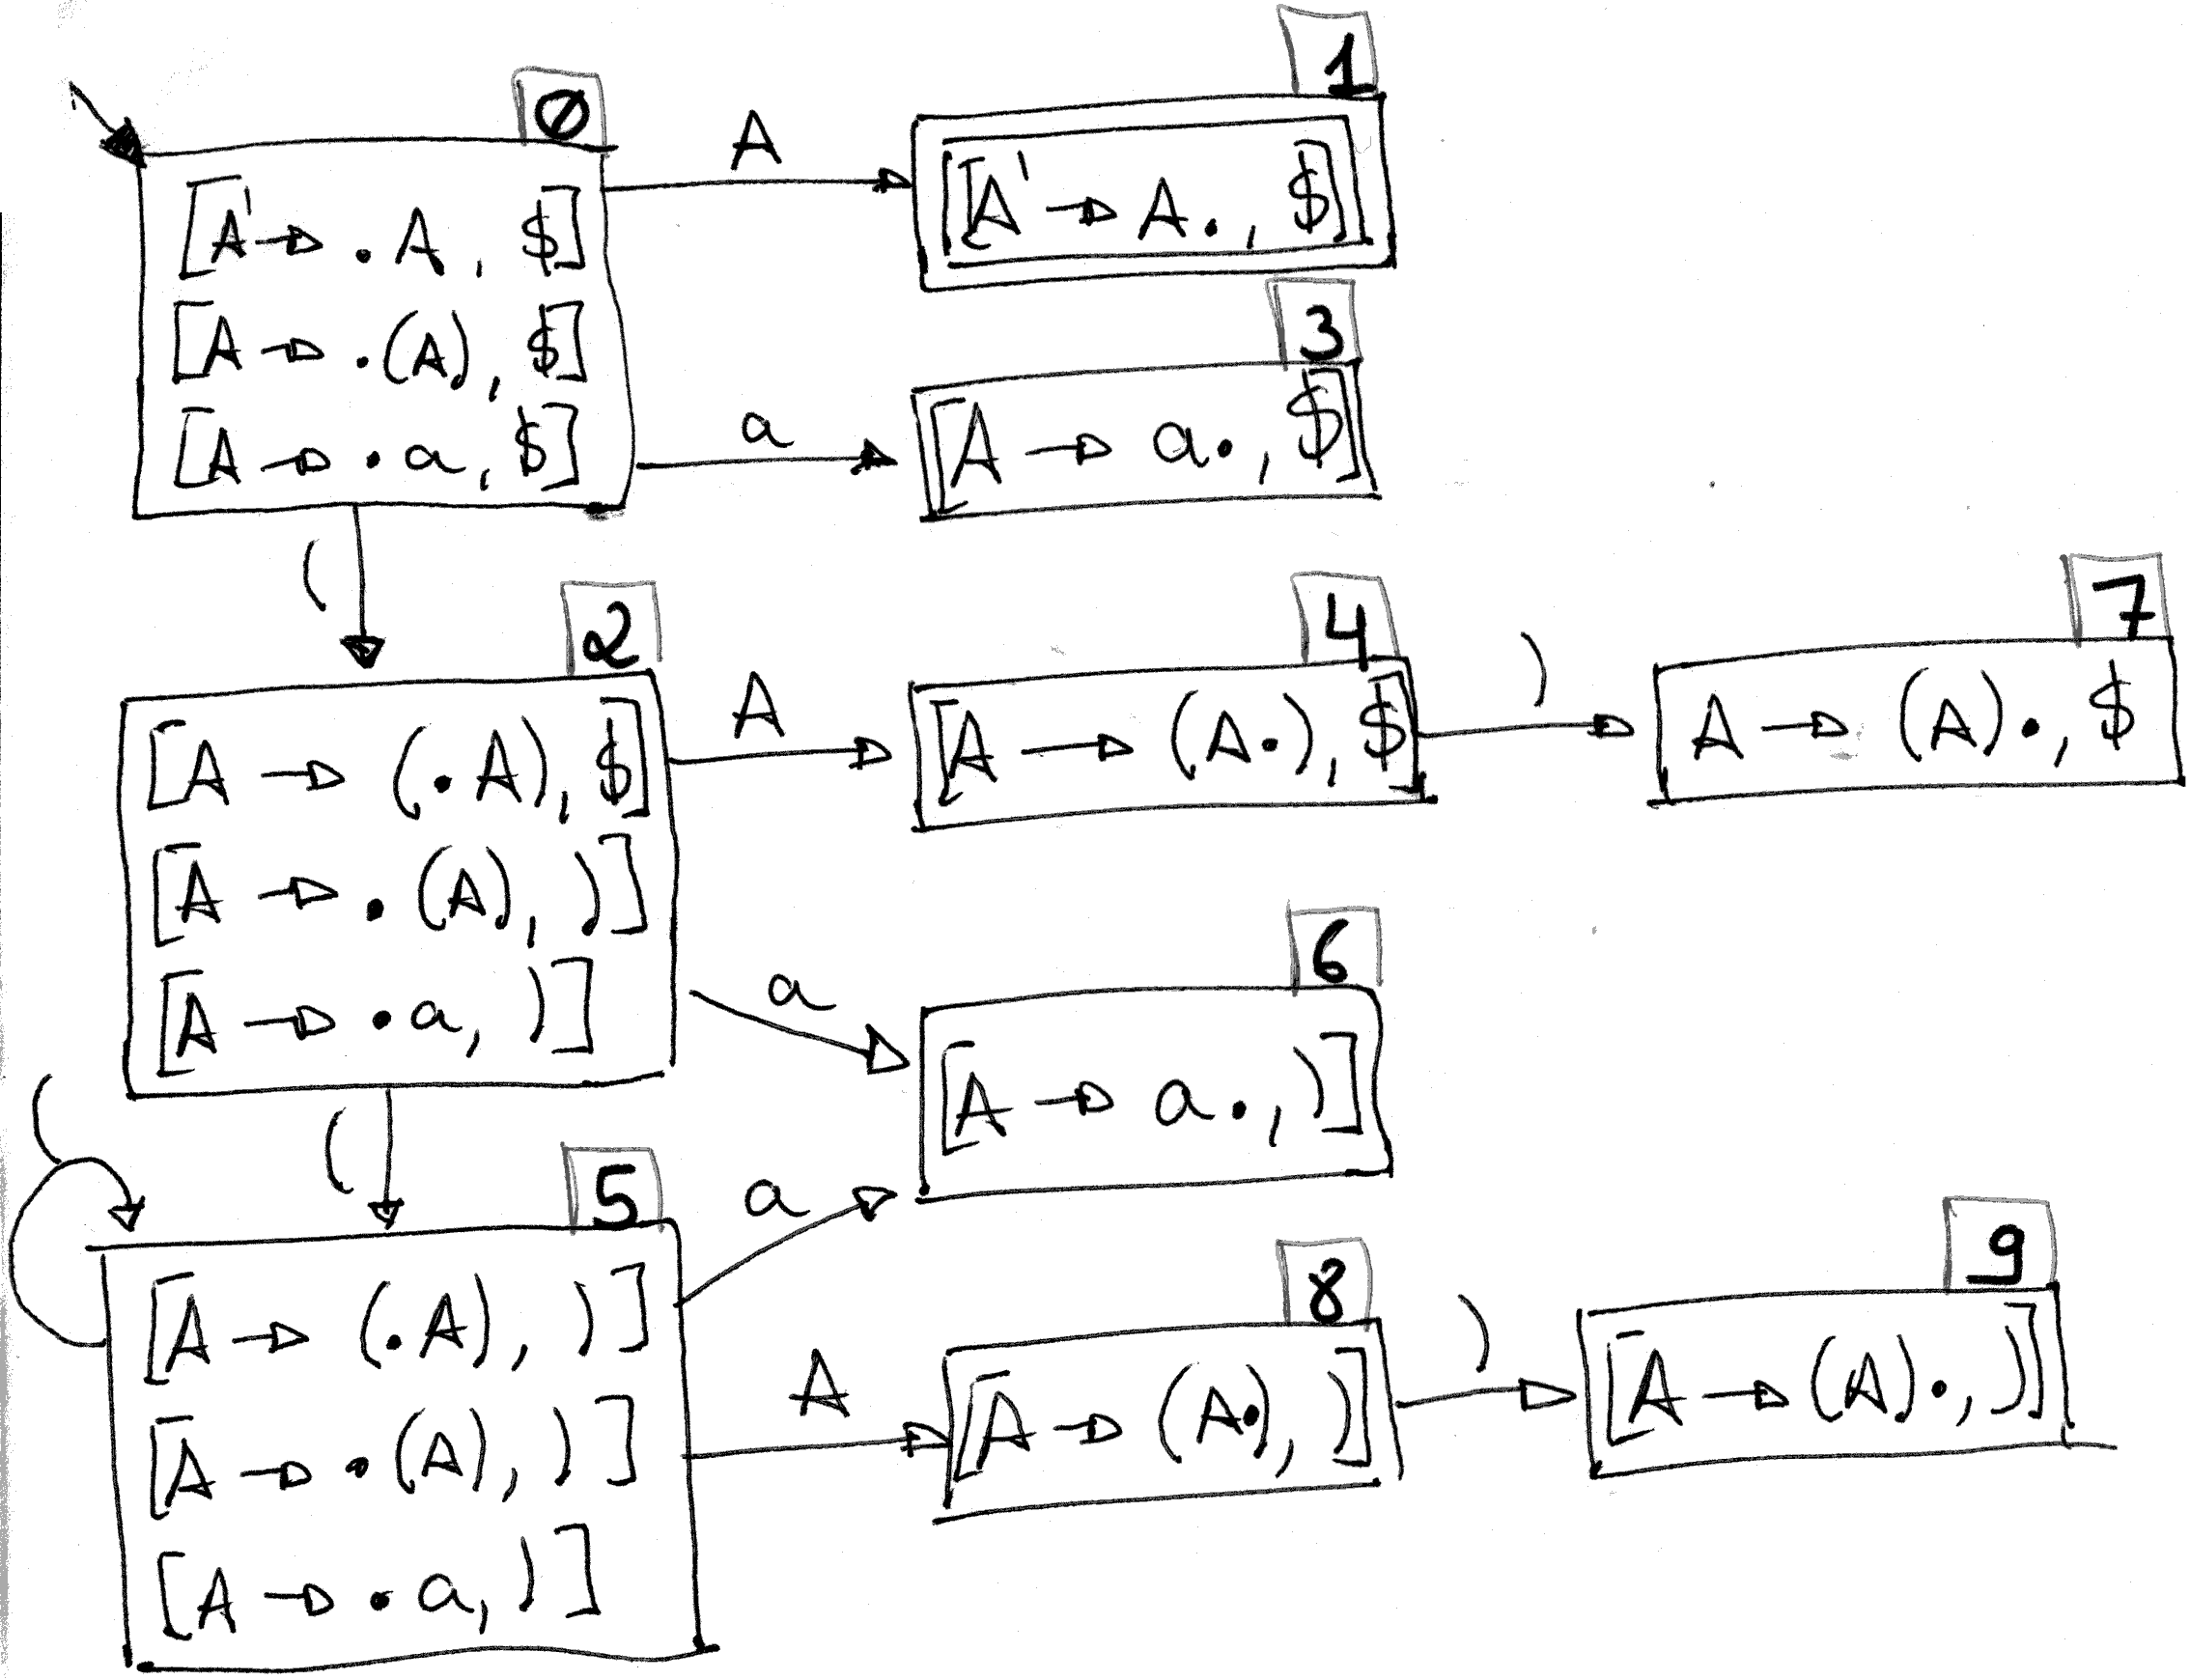 0
[A' → .A, $]
[A → .(A), $]
[A → .a, $]
A
1
[A' → A., $]
a
3
[A → a., $]
(
2
[A → (.A), $]
[A → .(A), )]
[A → .a, )]
A
4
[A → (A.), $]
)
7
A → (A)., $
a
6
[A → a., )]
(
(
5
[A → (.A), )]
[A → .(A), )]
[A → .a, )]
a
A
8
[A → (A.), )]
)
9
[A → (A)., )]